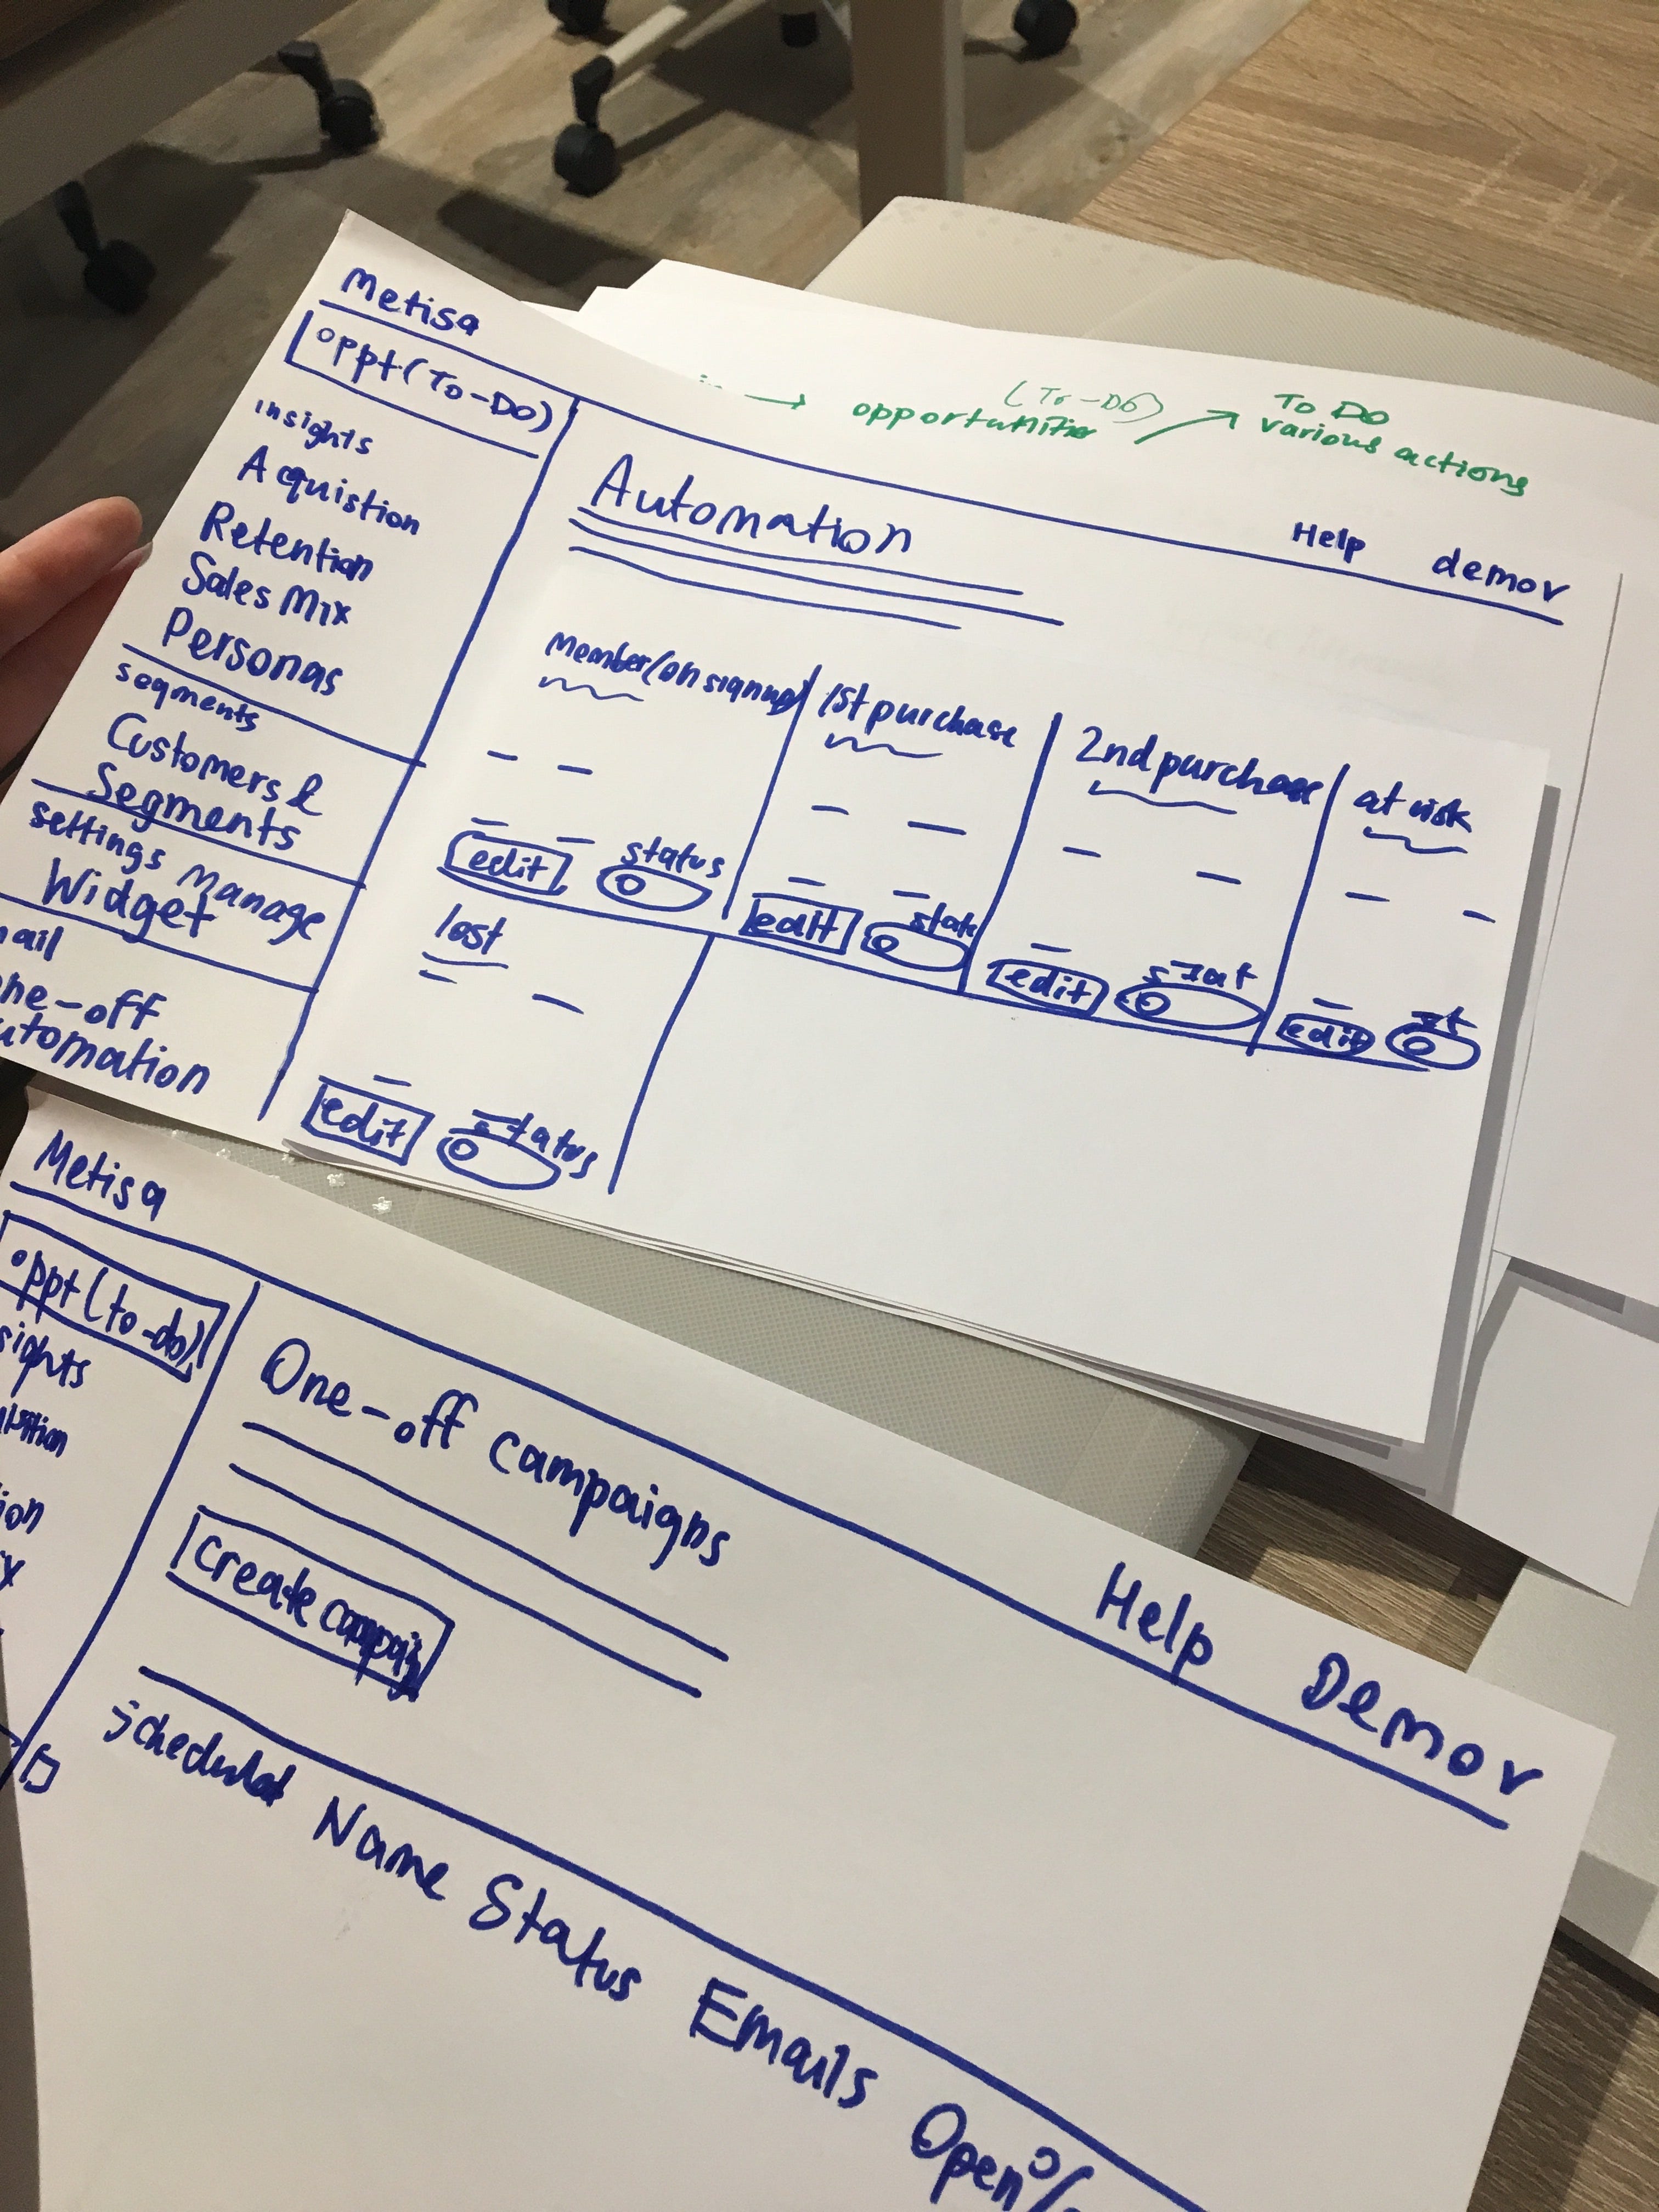 (To-Do)
opportunities
To Do
various actions
Metisa
oppt (To-Do)
Insights
Acquistion
Retention
Sales Mix
Personas
segments
Customers &
Segments
settings Manage
Widget
ail
ne-off
utomation
Help demo v
Automation
Member (on signup)
edit status
1st purchase
edit
2nd purchase
edit stat
at risk
edit st
lost
edit status
Metisa
oppt (to-do)
sights
ion
x
Help Demo v
One-off campaigns
create
scheduled Name Status Emails Open%